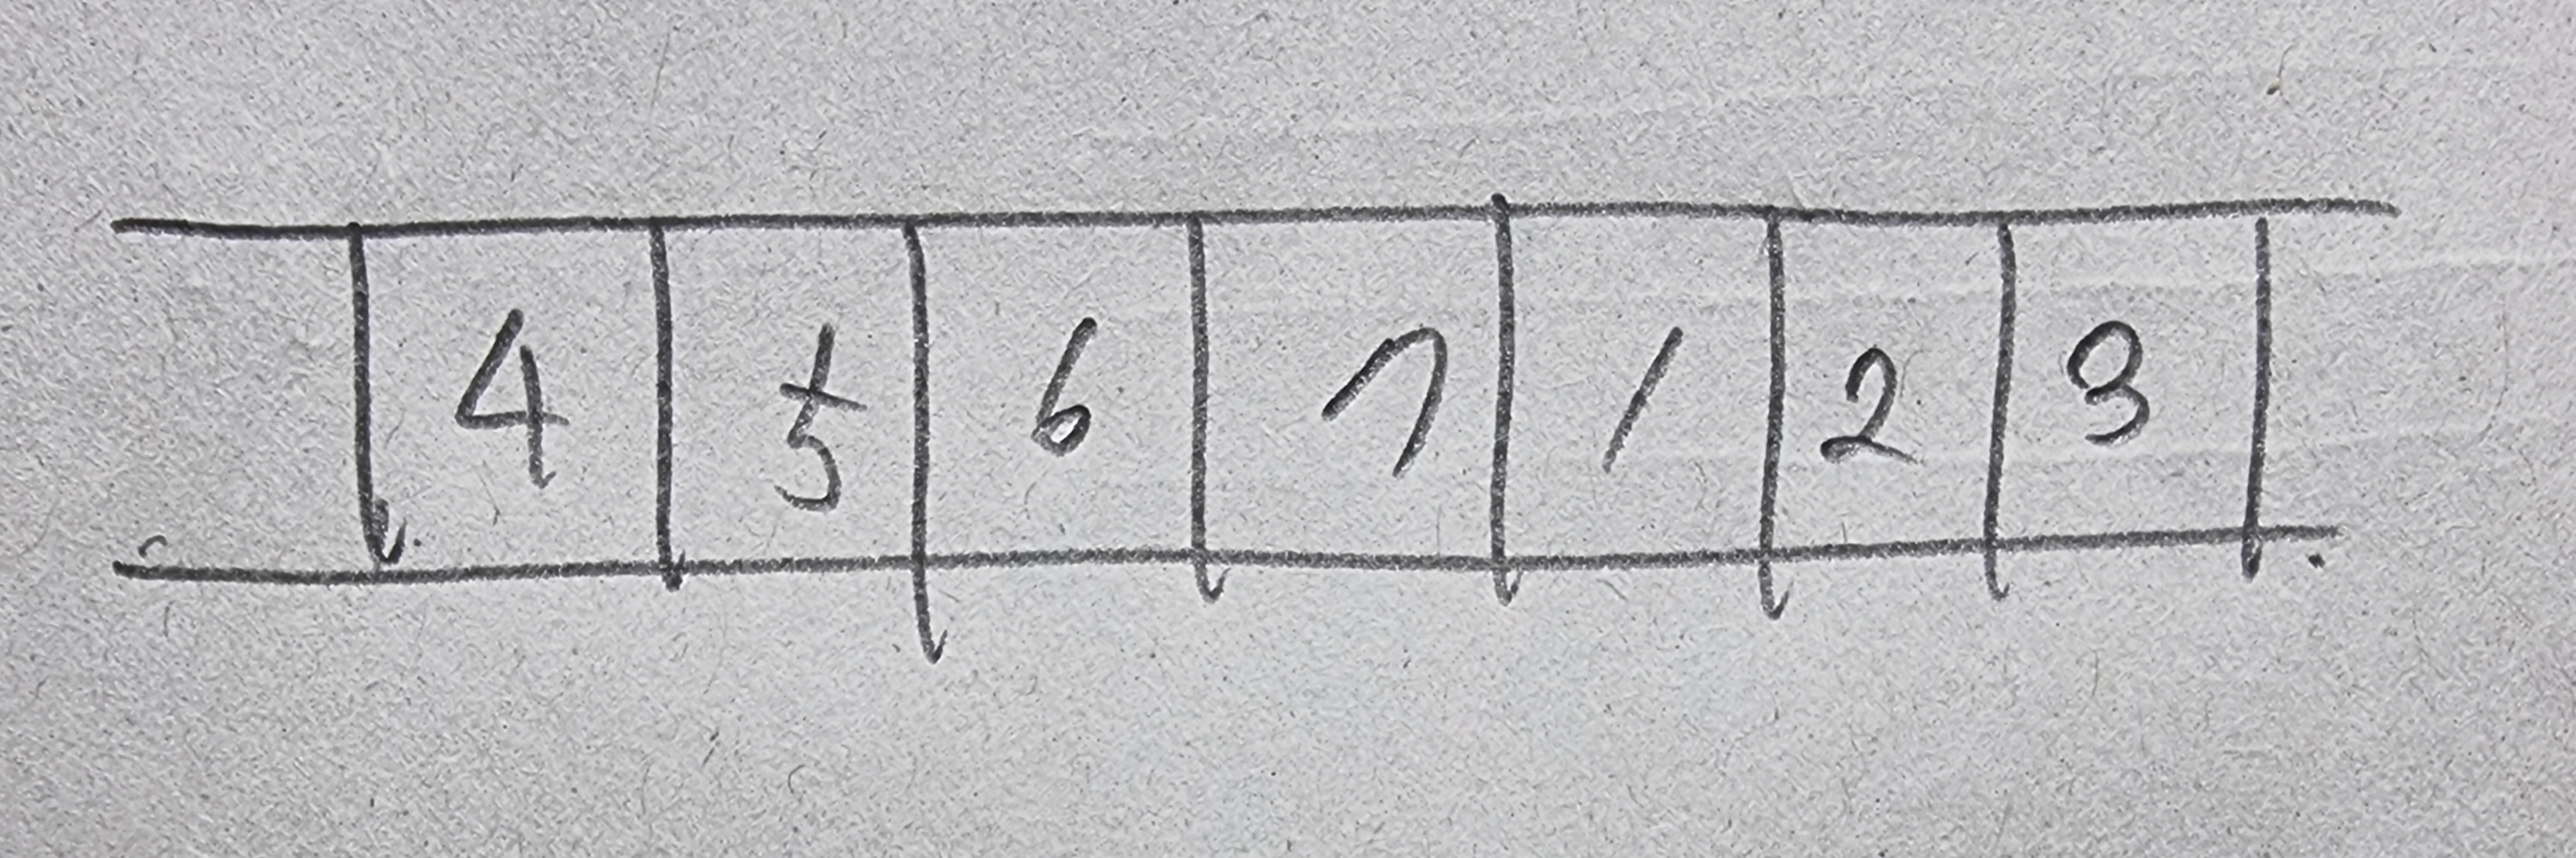 4 5 6 7 1 2 3